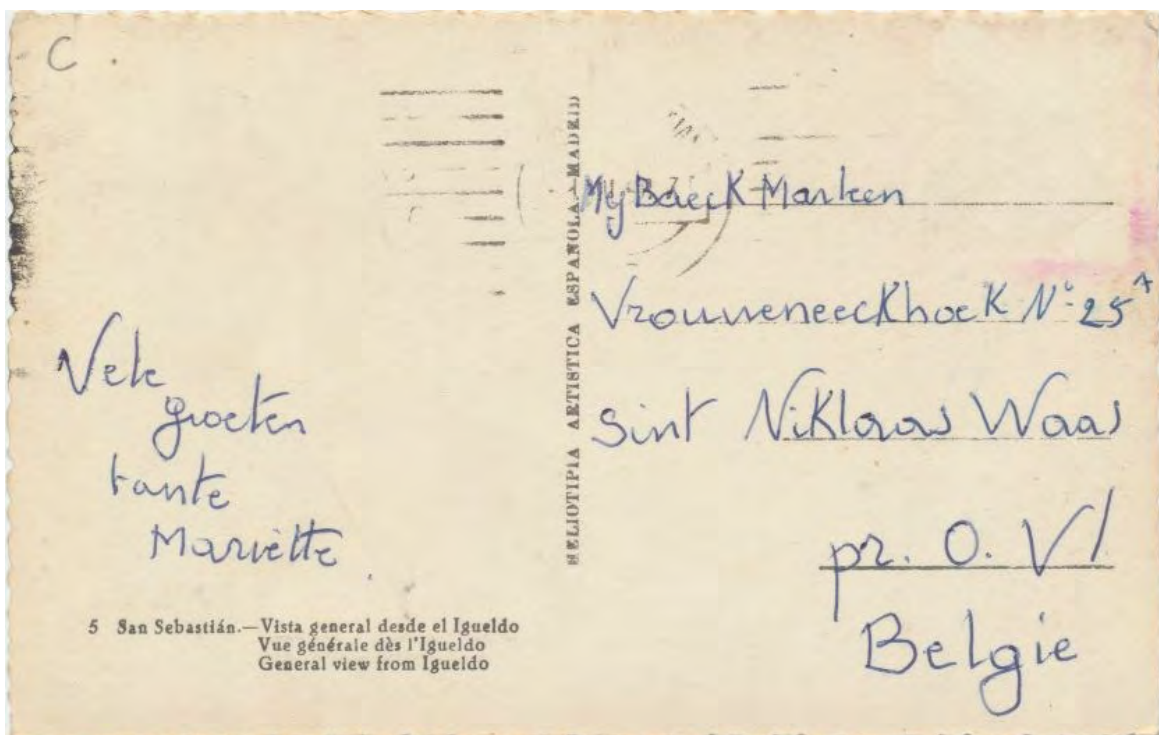 C
Vele
groeten
tante
Mariette
5 San Sebastián.—Vista general desde el Igueldo
Vue générale dès l'Igueldo
General view from Igueldo
HELIOTIPIA ARTISTICA ESPAÑOLA.—MADRID
Mej Baeck Marleen
Vrouweneeckhoek Nº 25
Sint Niklaas Waas
pr. O. Vl
Belgie